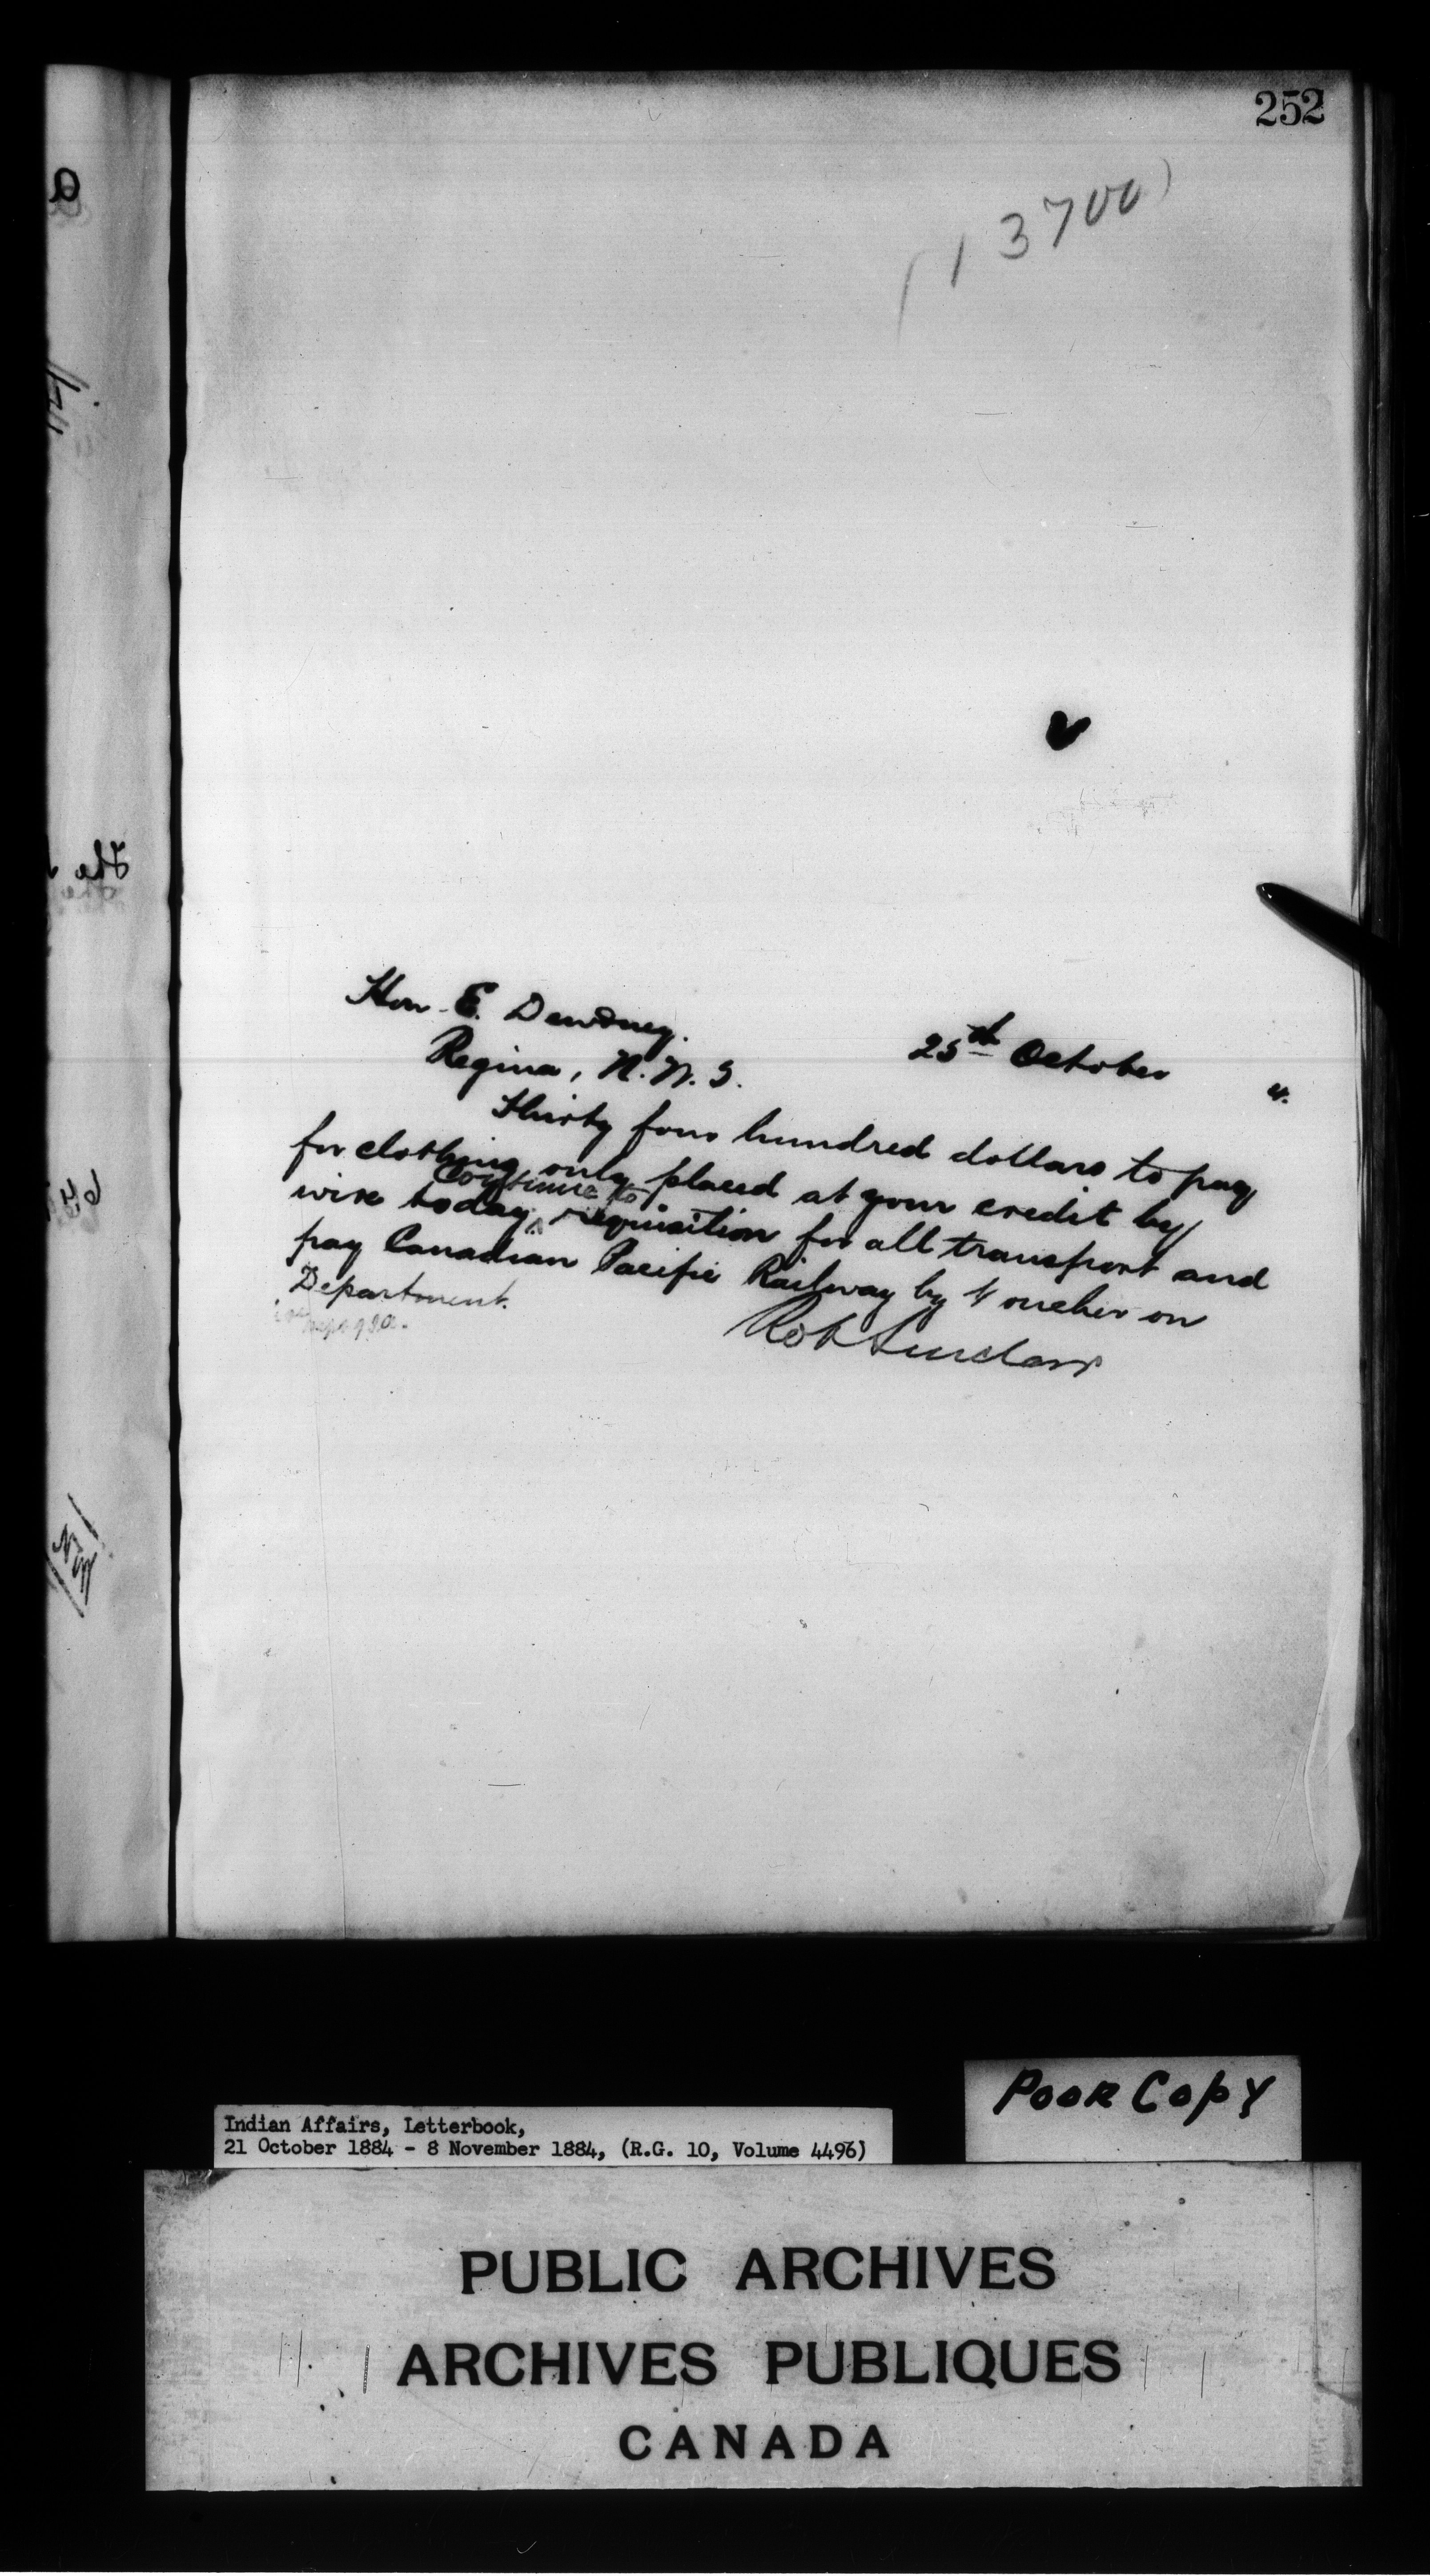 252
(13700)
25th October 4.
Hon. E. Dewdney.
Regina, N.W.T.
Thirty four hundred dollars to pay
for clothing only placed at your credit by
continue to
wire today, requisition for all transport and
pay Canadian Pacific Railway by Voucher on
Department.
Robt Sinclair
Poor Copy
Indian Affairs, Letterbook,
21 October 1884 - 8 November 1884, (R.G. 10, Volume 4496)
PUBLIC ARCHIVES
ARCHIVES PUBLIQUES
CANADA